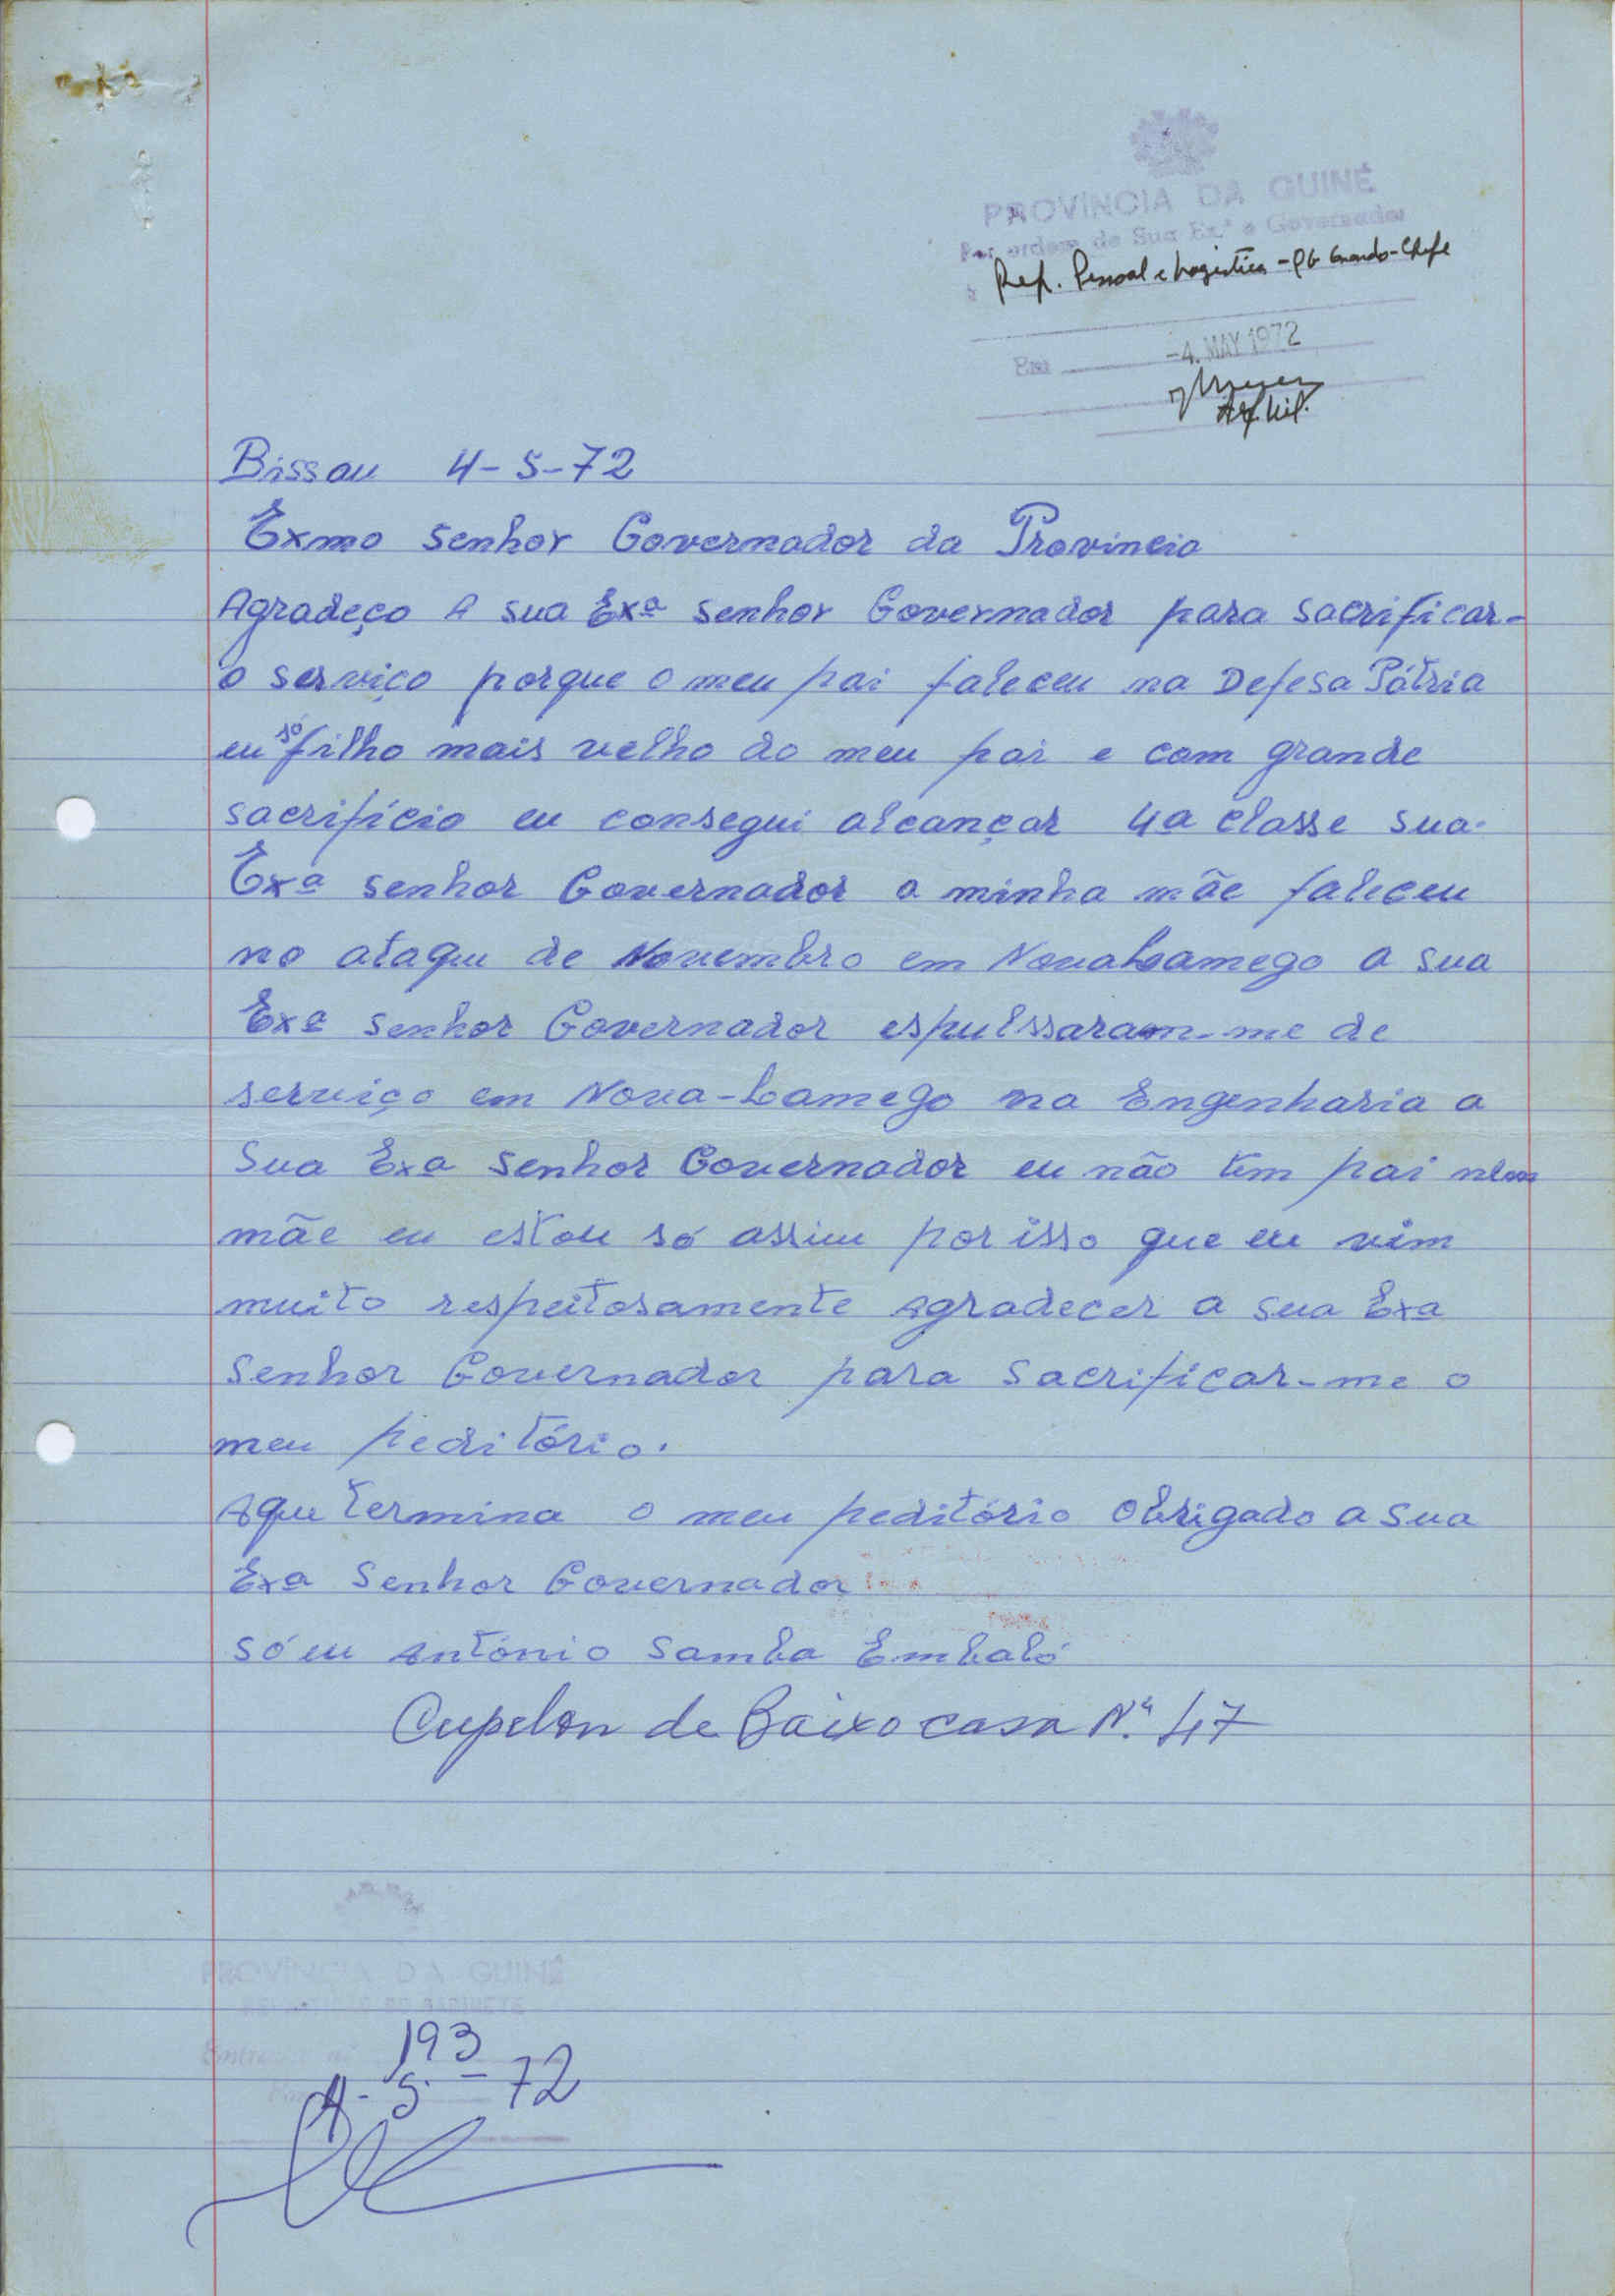 PROVÍNCIA DA GUINÉ
Por ordem de Sua Ex.ª o Governador
à Rep. Pessoal e Logística - QG Comando-Chefe
Em -4. MAY 1972
Bissau 4-5-72
Exmo senhor Governador da Provincia
Agradeço A sua Exª senhor Governador para sacrificar-
o serviço porque o meu pai faleceu na Defesa Pátria
eu só filho mais velho do meu pai e com grande
sacrifício eu consegui alcançar 4a classe sua.
Exª senhor Governador a minha mãe faleceu
no ataque de Novembro em Nova Lamego a sua
Exª senhor Governador espulssaram-me de
serviço em Nova-Lamego na Engenharia a
Sua Exa senhor Governador eu não tem pai nem
mãe eu estou só assim por isso que eu vim
muito respeitosamente agradecer a sua Exa
Senhor Governador para sacrificar-me o
meu peditório.
Aque termina o meu peditório obrigado a sua
Exa Senhor Governador
só eu António Samba Embaló
Cupelon de Baixo casa N.º 47
PROVÍNCIA DA GUINÉ
REPARTIÇÃO DO GABINETE
Entrada nº 193
Em 4-5-72